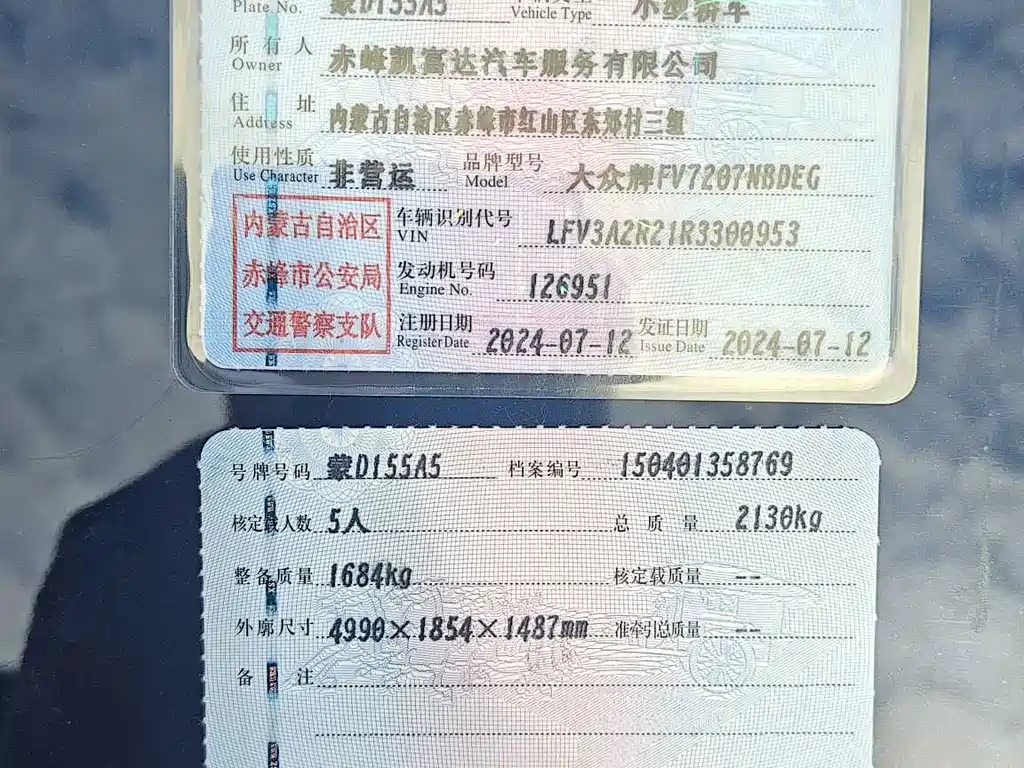 Plate No. 蒙D155A5 Vehicle Type 小型轿车
所有人 Owner 赤峰凯富达汽车服务有限公司
住址 Address 内蒙古自治区赤峰市红山区东郊村三组
使用性质 Use Character 非营运 品牌型号 Model 大众牌FV7207NBDEG
内蒙古自治区
赤峰市公安局
交通警察支队
车辆识别代号 VIN LFV3A2R21R3300953
发动机号码 Engine No. 126951
注册日期 Register Date 2024-07-12 发证日期 Issue Date 2024-07-12
号牌号码 蒙D155A5 档案编号 150401358769
核定载人数 5人 总质量 2130kg
整备质量 1684kg 核定载质量 --
外廓尺寸 4990×1854×1487mm 准牵引总质量 --
备注